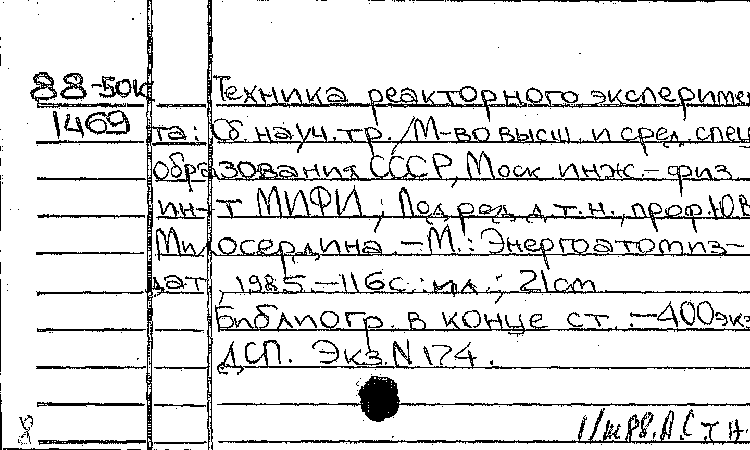 88-50к Техника реакторного эксперимен
1469 та: Сб. науч. тр. / М-во высш. и сред. спец
образования СССР, Моск. инж.-физ.
ин-т МИФИ; Под ред. д.т.н., проф. Ю.В
Милосердина. – М.: Энергоатомиз-
дат, 1985. – 116с.: ил.; 21 см
Библиогр. в конце ст. – 400 экз
ДСП. Экз. N 174.